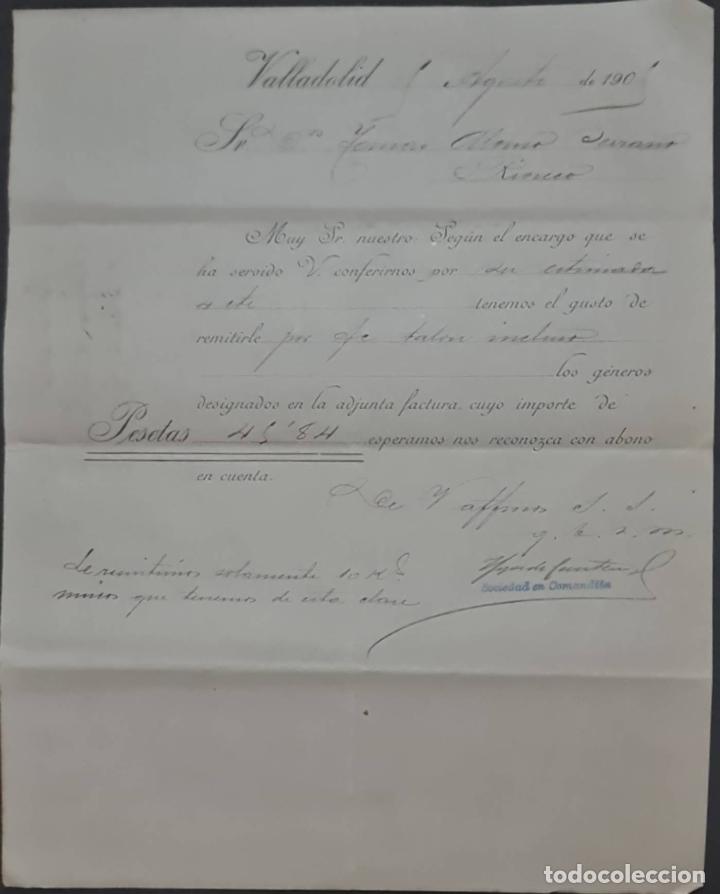 Valladolid 5 Agosto de 1905
Sr. Dn Alonso Serrano
Rioseco
Muy Sr. nuestro: Según el encargo que se
ha servido V. conferirnos por su estimada
tenemos el gusto de
remitirle por fc talón incluso
los géneros
designados en la adjunta factura, cuyo importe de
Pesetas 45'84 esperamos nos reconozca con abono
en cuenta.
De V affmos S. S.
q. b. s. m.
Le remitimos solamente 10 Ks
únicos que tenemos de esta clase
Hijos de
Sociedad en Comandita
todocoleccion.net